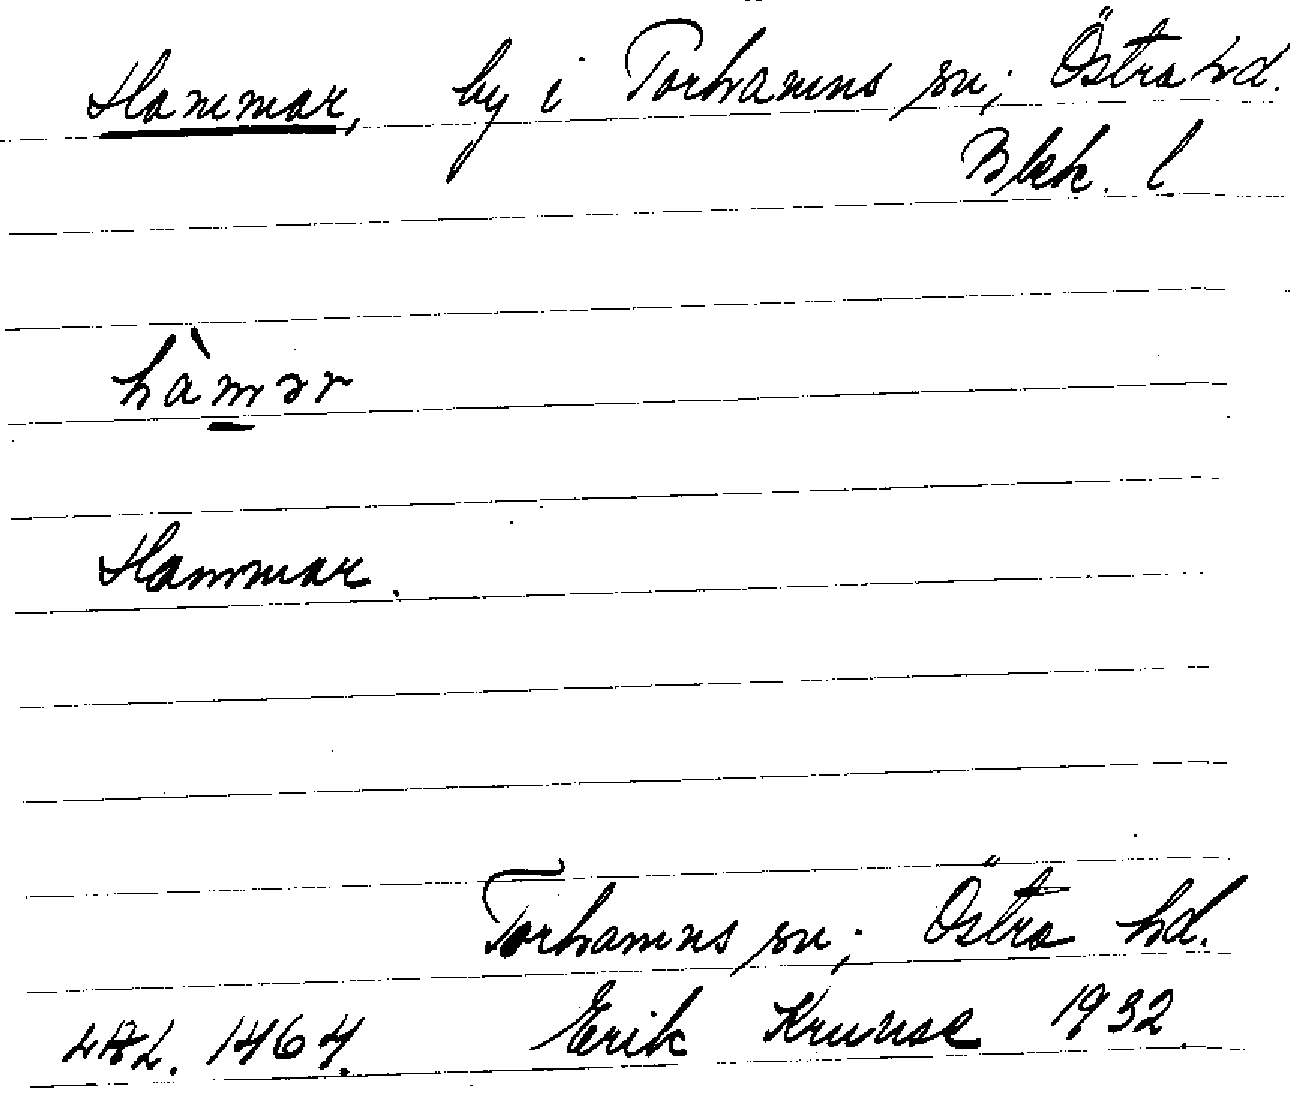 Hammar, by i Torhamns sn; Östra hd.
Blek. l
hàmər
Hammar.
Torhamns sn; Östra hd.
LAL. 1464. Erik Kruuse 1932